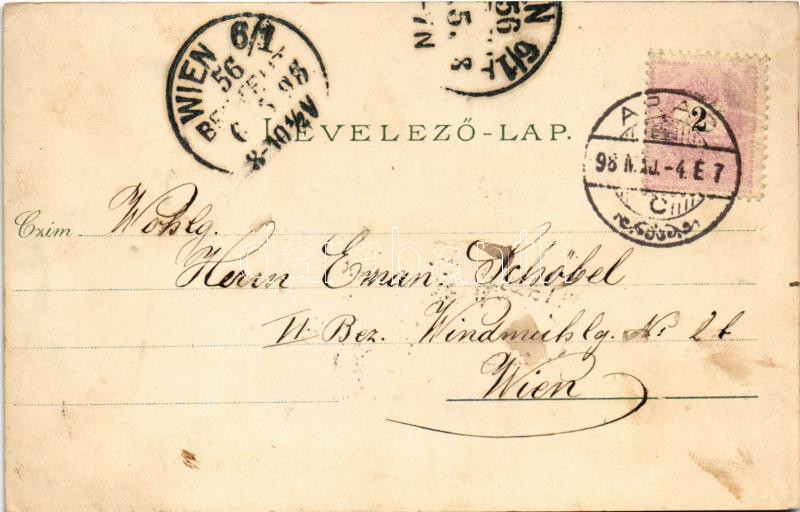 WIEN 6/1
56
6 5 98
8-10½V
WIEN 6/1
56
LEVELEZŐ-LAP.
2
ARAD
98 MÁJ.-4.E.7
C
Czim
Wohlg.
Herrn Eman. Schöbel
VI Bez. Windmühlg. No 26
Wien